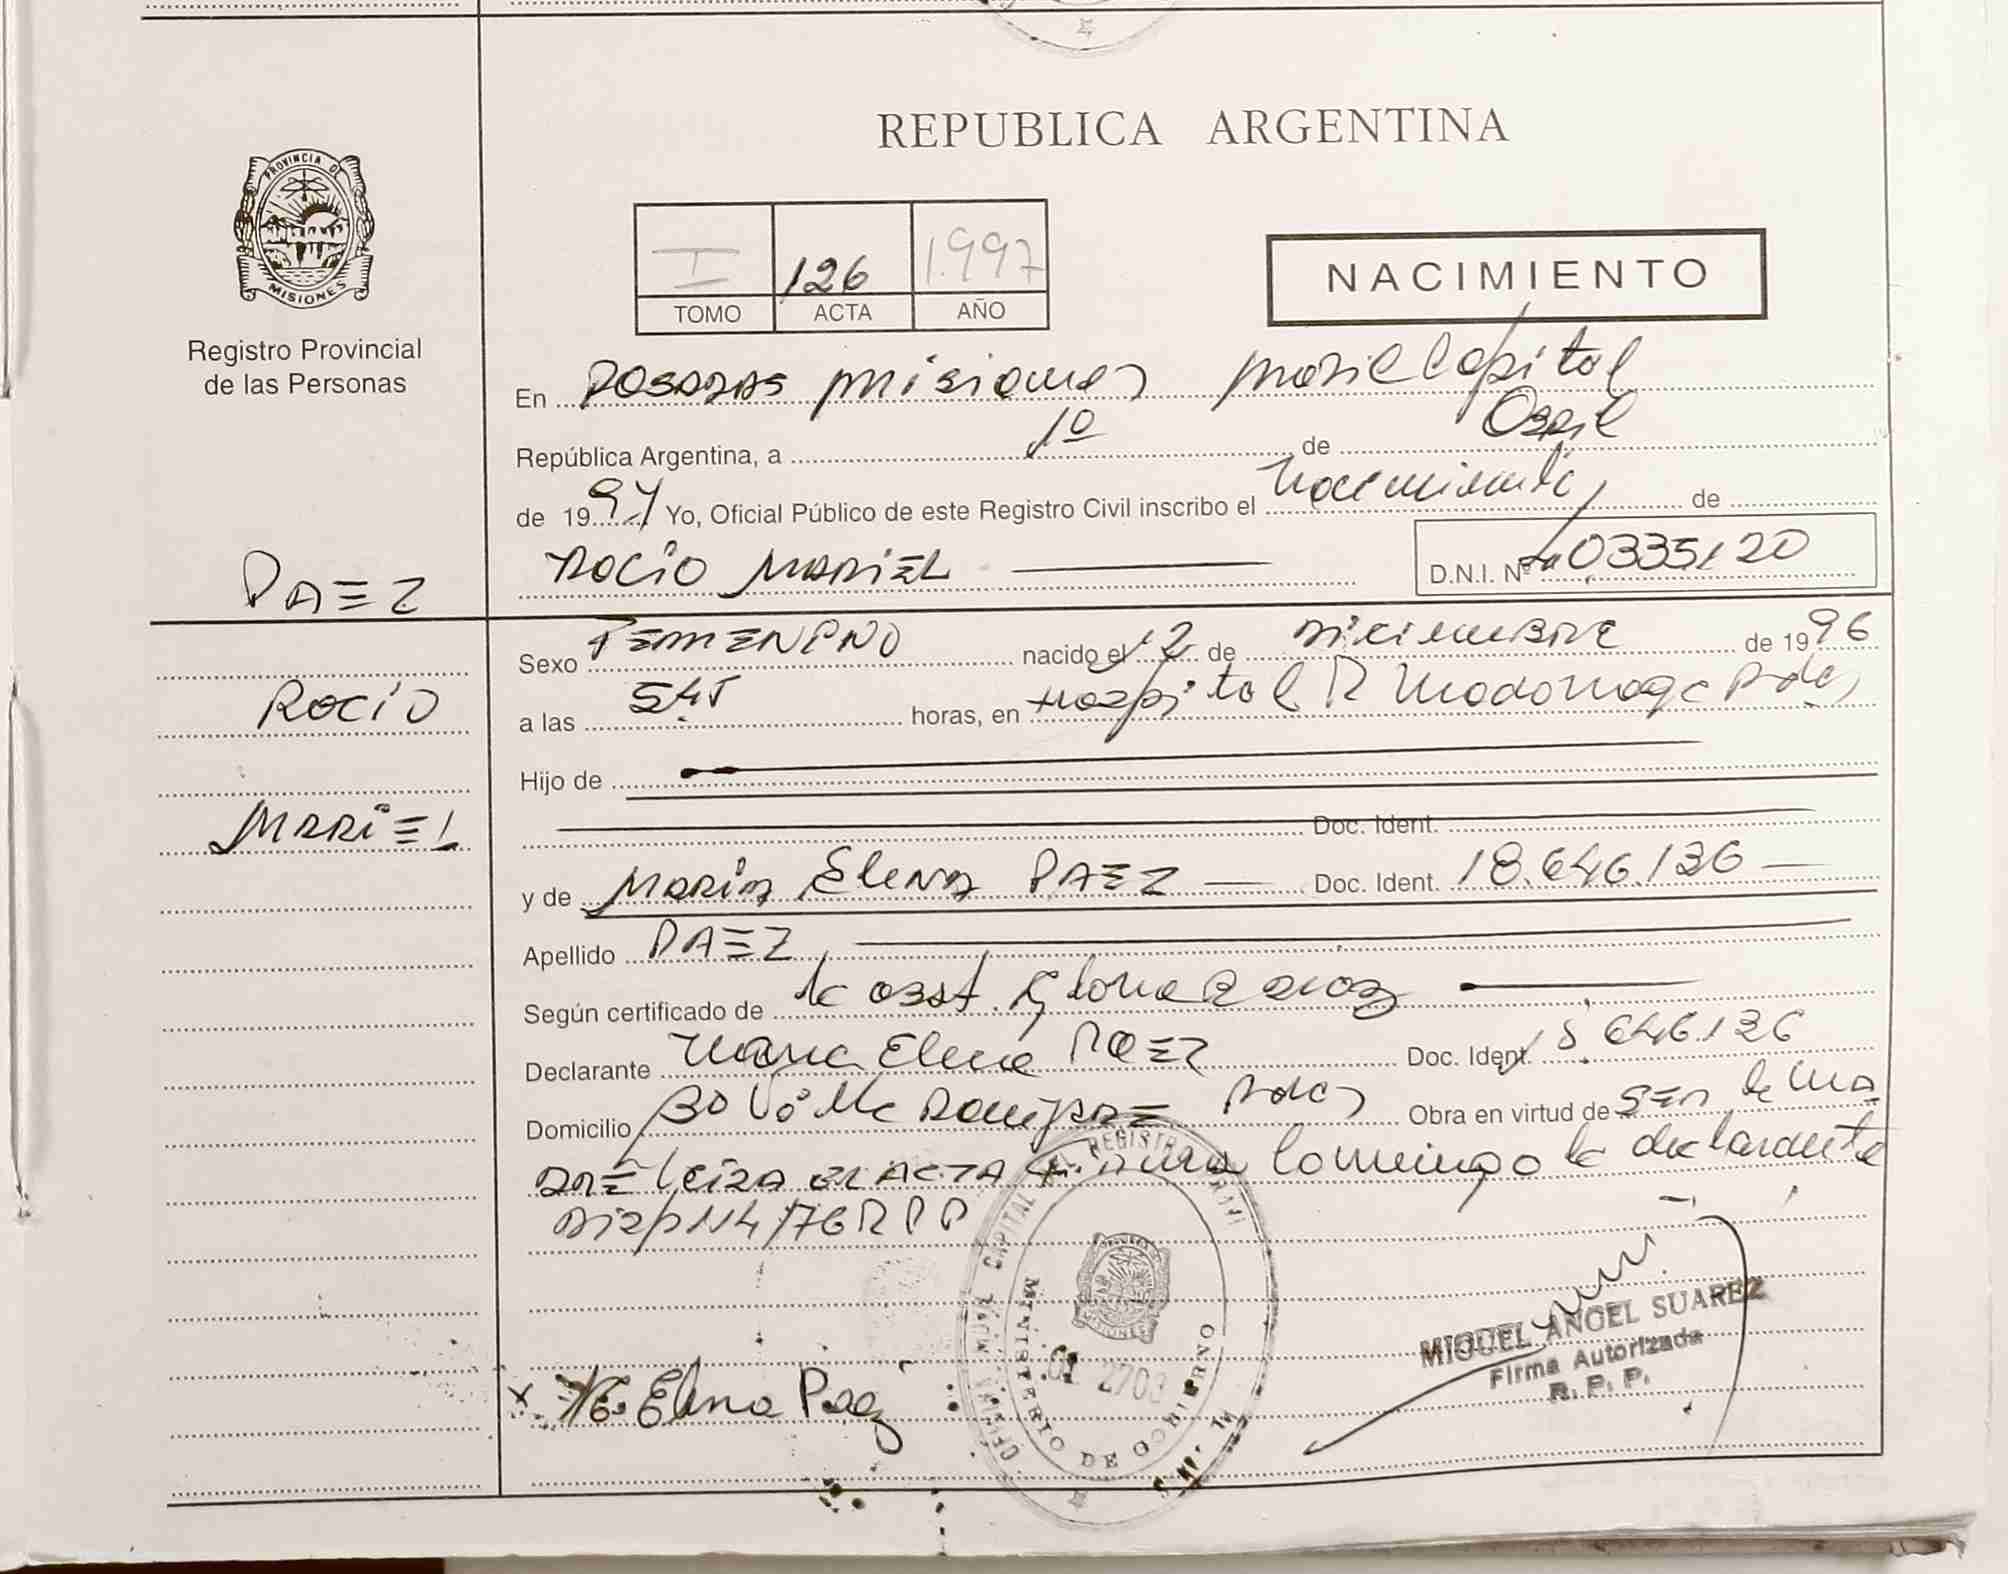 REPUBLICA ARGENTINA
PROVINCIA DE
MISIONES
Registro Provincial
de las Personas
I 126 1.997
TOMO ACTA AÑO
NACIMIENTO
En POSADAS MISIONES Capital
República Argentina, a 1º de Abril
de 1997 Yo, Oficial Público de este Registro Civil inscribo el Nacimiento de
ROCIO MARIEL D.N.I. Nº 40335120
PAEZ
ROCIO
MARIEL
Sexo FEMENINO nacido el 12 de Diciembre de 1996
a las 545 horas, en Hospital R Madariaga Pdas
Hijo de
Doc. Ident.
y de MARIA ELENA PAEZ Doc. Ident. 18.646.136
Apellido PAEZ
Según certificado de la obst. Gloria
Declarante Maria Elena PAEZ Doc. Ident. 18.646.136
Domicilio Pdas Obra en virtud de ser la MA
DRE Leida el ACTA firma conmigo la declarante
Disp 114/76 R P P
OFICINA CAPITAL DEL REGISTRO
MINISTERIO DE GOBIERNO
MISIONES
M. Elena Paez
MIGUEL ANGEL SUAREZ
Firma Autorizada
R. P. P.